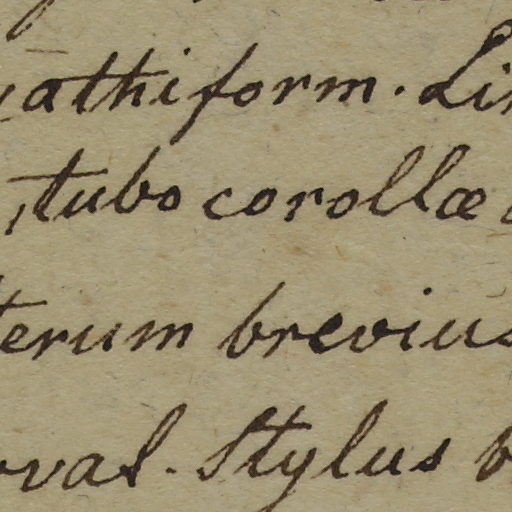 yathiform. Lin
, tubo corollæ
terum brevius
oval. Stylus b